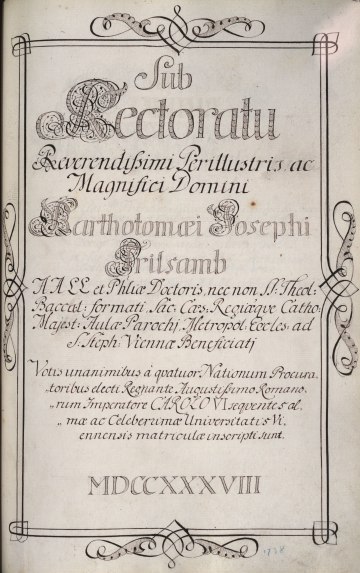 Sub
Rectoratu
Reverendissimi Perillustris ac
Magnifici Domini
Bartholomæi Josephi
Trilsamb
AALL et Phliæ Doctoris, nec non SS: Theol:
Baccal: formati, Sac: Cæs: Regiæque Catho:
Majest: Aulæ Parochi, Metropol: Eccles: ad
S. Steph: Viennæ Beneficiati
Votis unanimibus à quatuor Nationum Procura-
„toribus electi Regnante Augustissimo Romano-
„rum Imperatore CAROLO VI sequentes al-
„mæ ac Celeberrimæ Universitatis Vi-
ennensis matriculæ inscripti sunt.
MDCCXXXVIII